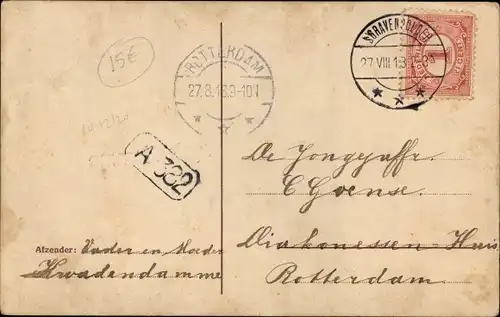 15€
ROTTERDAM
27.8.13.9-10V
27.VIII.13
1
A 382
De Jongejuffr.
C Goense.
Diakonessen-Huis
Rotterdam.
Afzender: Vader en Moeder
Kwadendamme